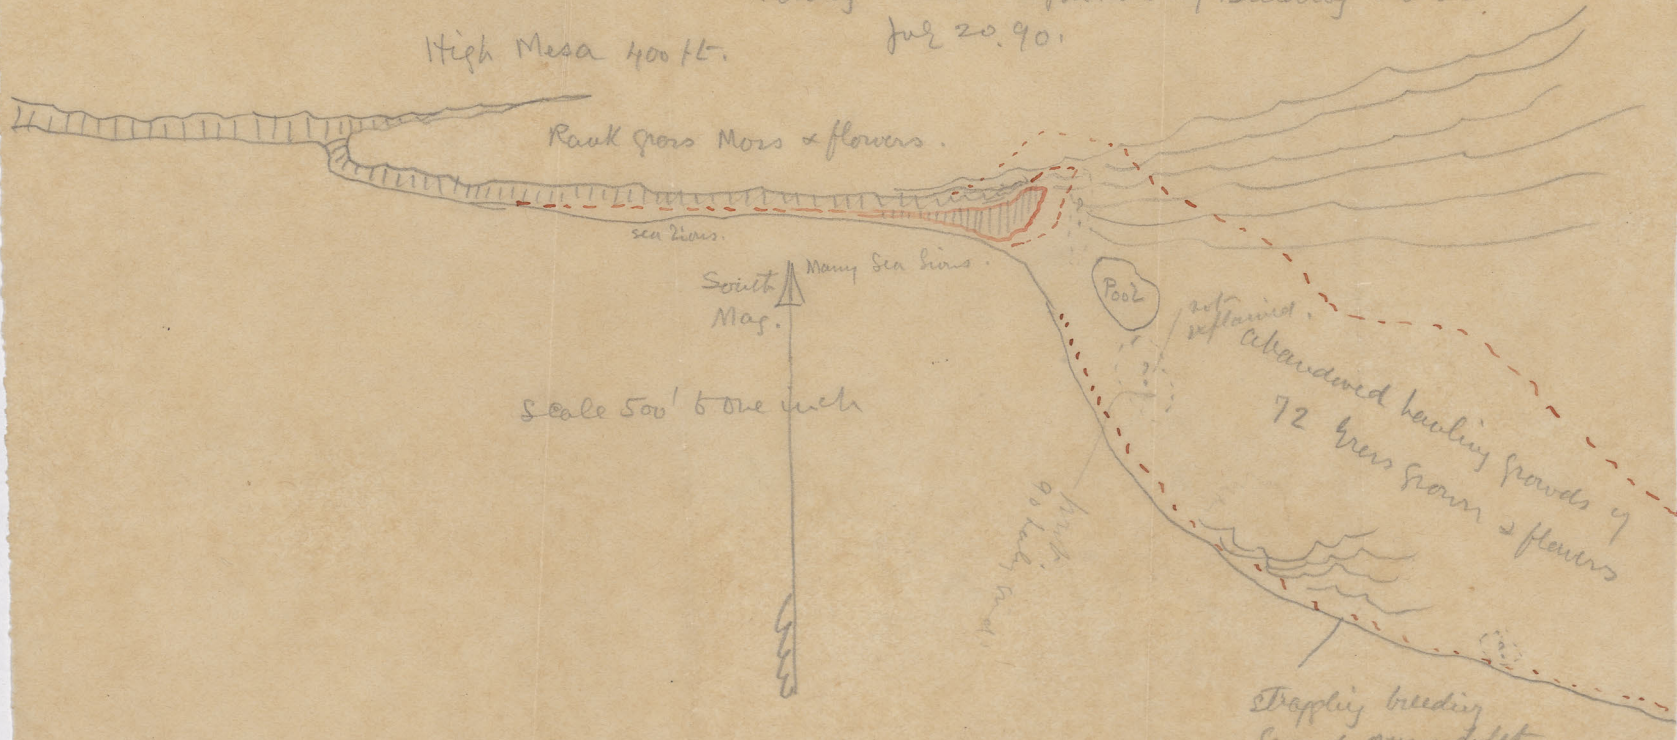 July 20.90.
High Mesa 400 ft.
Rank grass Moss & flowers.
sea lions.
Many Sea lions.
South
Mag.
Pool
not
explained.
Scale 500' to one inch
abandoned hauling grounds of
72 grass grown & flowers
breeding